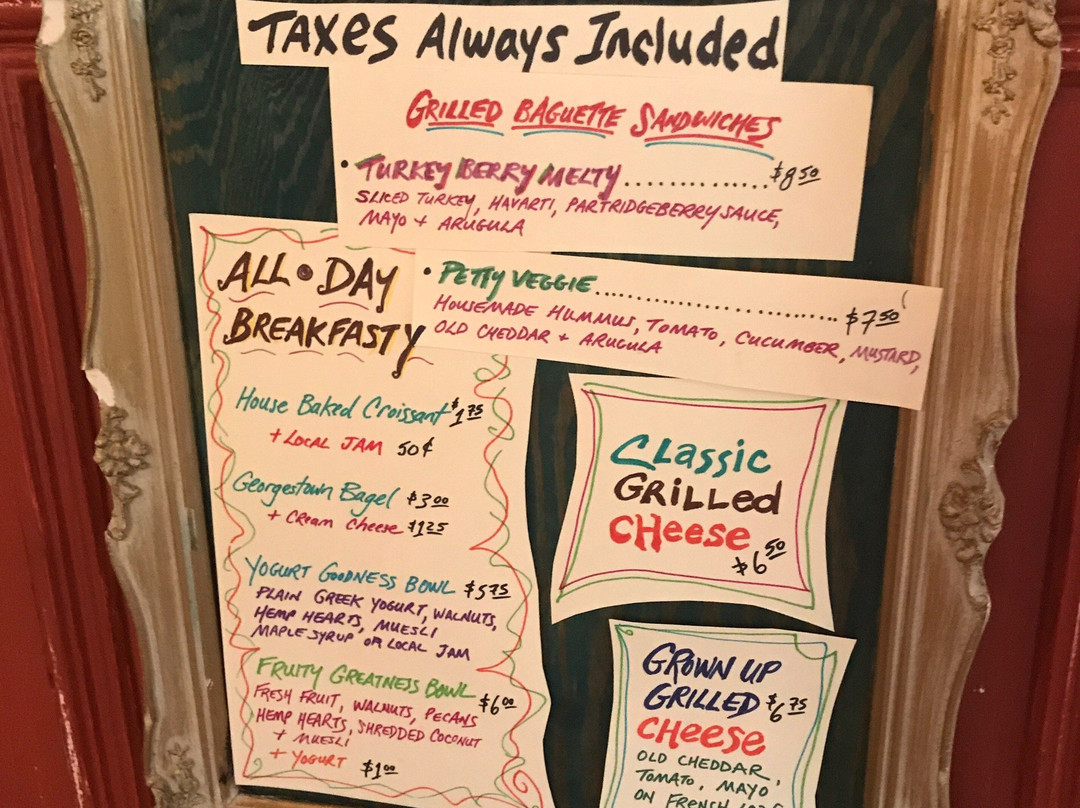 TAXES Always Included
GRILLED BAGUETTE SANDWICHES
• TURKEY BERRY MELTY.............. $8.50
SLICED TURKEY, HAVARTI, PARTRIDGEBERRY SAUCE,
MAYO + ARUGULA
• PETTY VEGGIE........................... $7.50
HOUSEMADE HUMMUS, TOMATO, CUCUMBER, MUSTARD,
OLD CHEDDAR + ARUGULA
ALL • DAY
BREAKFASTY
House Baked Croissant $1.75
+ LOCAL JAM 50¢
Georgestown Bagel $3.00
+ Cream Cheese $1.25
YOGURT GOODNESS BOWL $5.75
PLAIN GREEK YOGURT, WALNUTS,
HEMP HEARTS, MUESLI
MAPLE SYRUP OR LOCAL JAM
FRUITY GREATNESS BOWL $6.00
FRESH FRUIT, WALNUTS, PECANS
HEMP HEARTS, SHREDDED COCONUT
+ MUESLI
+ YOGURT $1.00
CLASSIC
GRILLED
CHEESE
$6.50
GROWN UP
GRILLED $6.75
CHEESE
OLD CHEDDAR,
TOMATO, MAYO
ON FRENCH